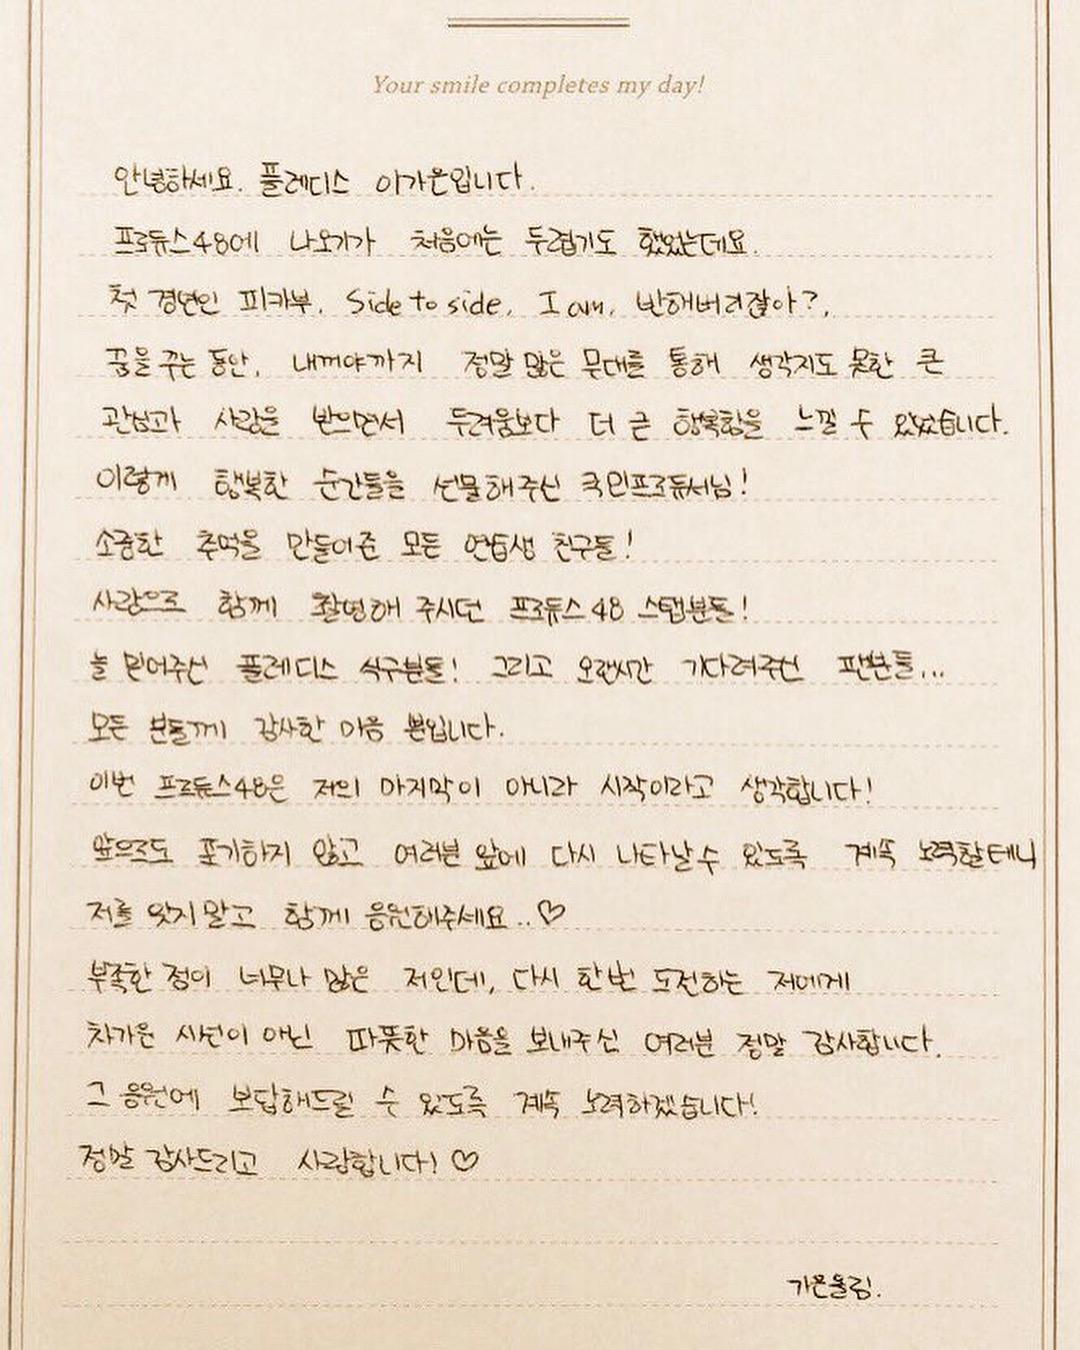 Your smile completes my day!
안녕하세요. 플레디스 이가은입니다.
프로듀스48에 나오기가 처음에는 두렵기도 했었는데요.
첫 경연인 피카부, Side to side, I am, 반해버리잖아?,
꿈을 꾸는 동안, 내꺼야까지 정말 많은 무대를 통해 생각지도 못한 큰
관심과 사랑을 받으면서 두려움보다 더 큰 행복함을 느낄 수 있었습니다.
이렇게 행복한 순간들을 선물해주신 국민프로듀서님!
소중한 추억을 만들어준 모든 연습생 친구들!
사랑으로 함께 촬영해 주시던 프로듀스48 스탭분들!
늘 믿어주신 플레디스 식구분들! 그리고 오랜시간 기다려주신 팬분들...
모든 분들께 감사한 마음 뿐입니다.
이번 프로듀스48은 저의 마지막이 아니라 시작이라고 생각합니다!
앞으로도 포기하지 않고 여러분 앞에 다시 나타날 수 있도록 계속 노력할테니
저를 잊지말고 함께 응원해주세요..♡
부족한 점이 너무나 많은 저인데, 다시 한번 도전하는 저에게
차가운 시선이 아닌 따뜻한 마음을 보내주신 여러분 정말 감사합니다.
그 응원에 보답해드릴 수 있도록 계속 노력하겠습니다!
정말 감사드리고 사랑합니다! ♡
가은올림.